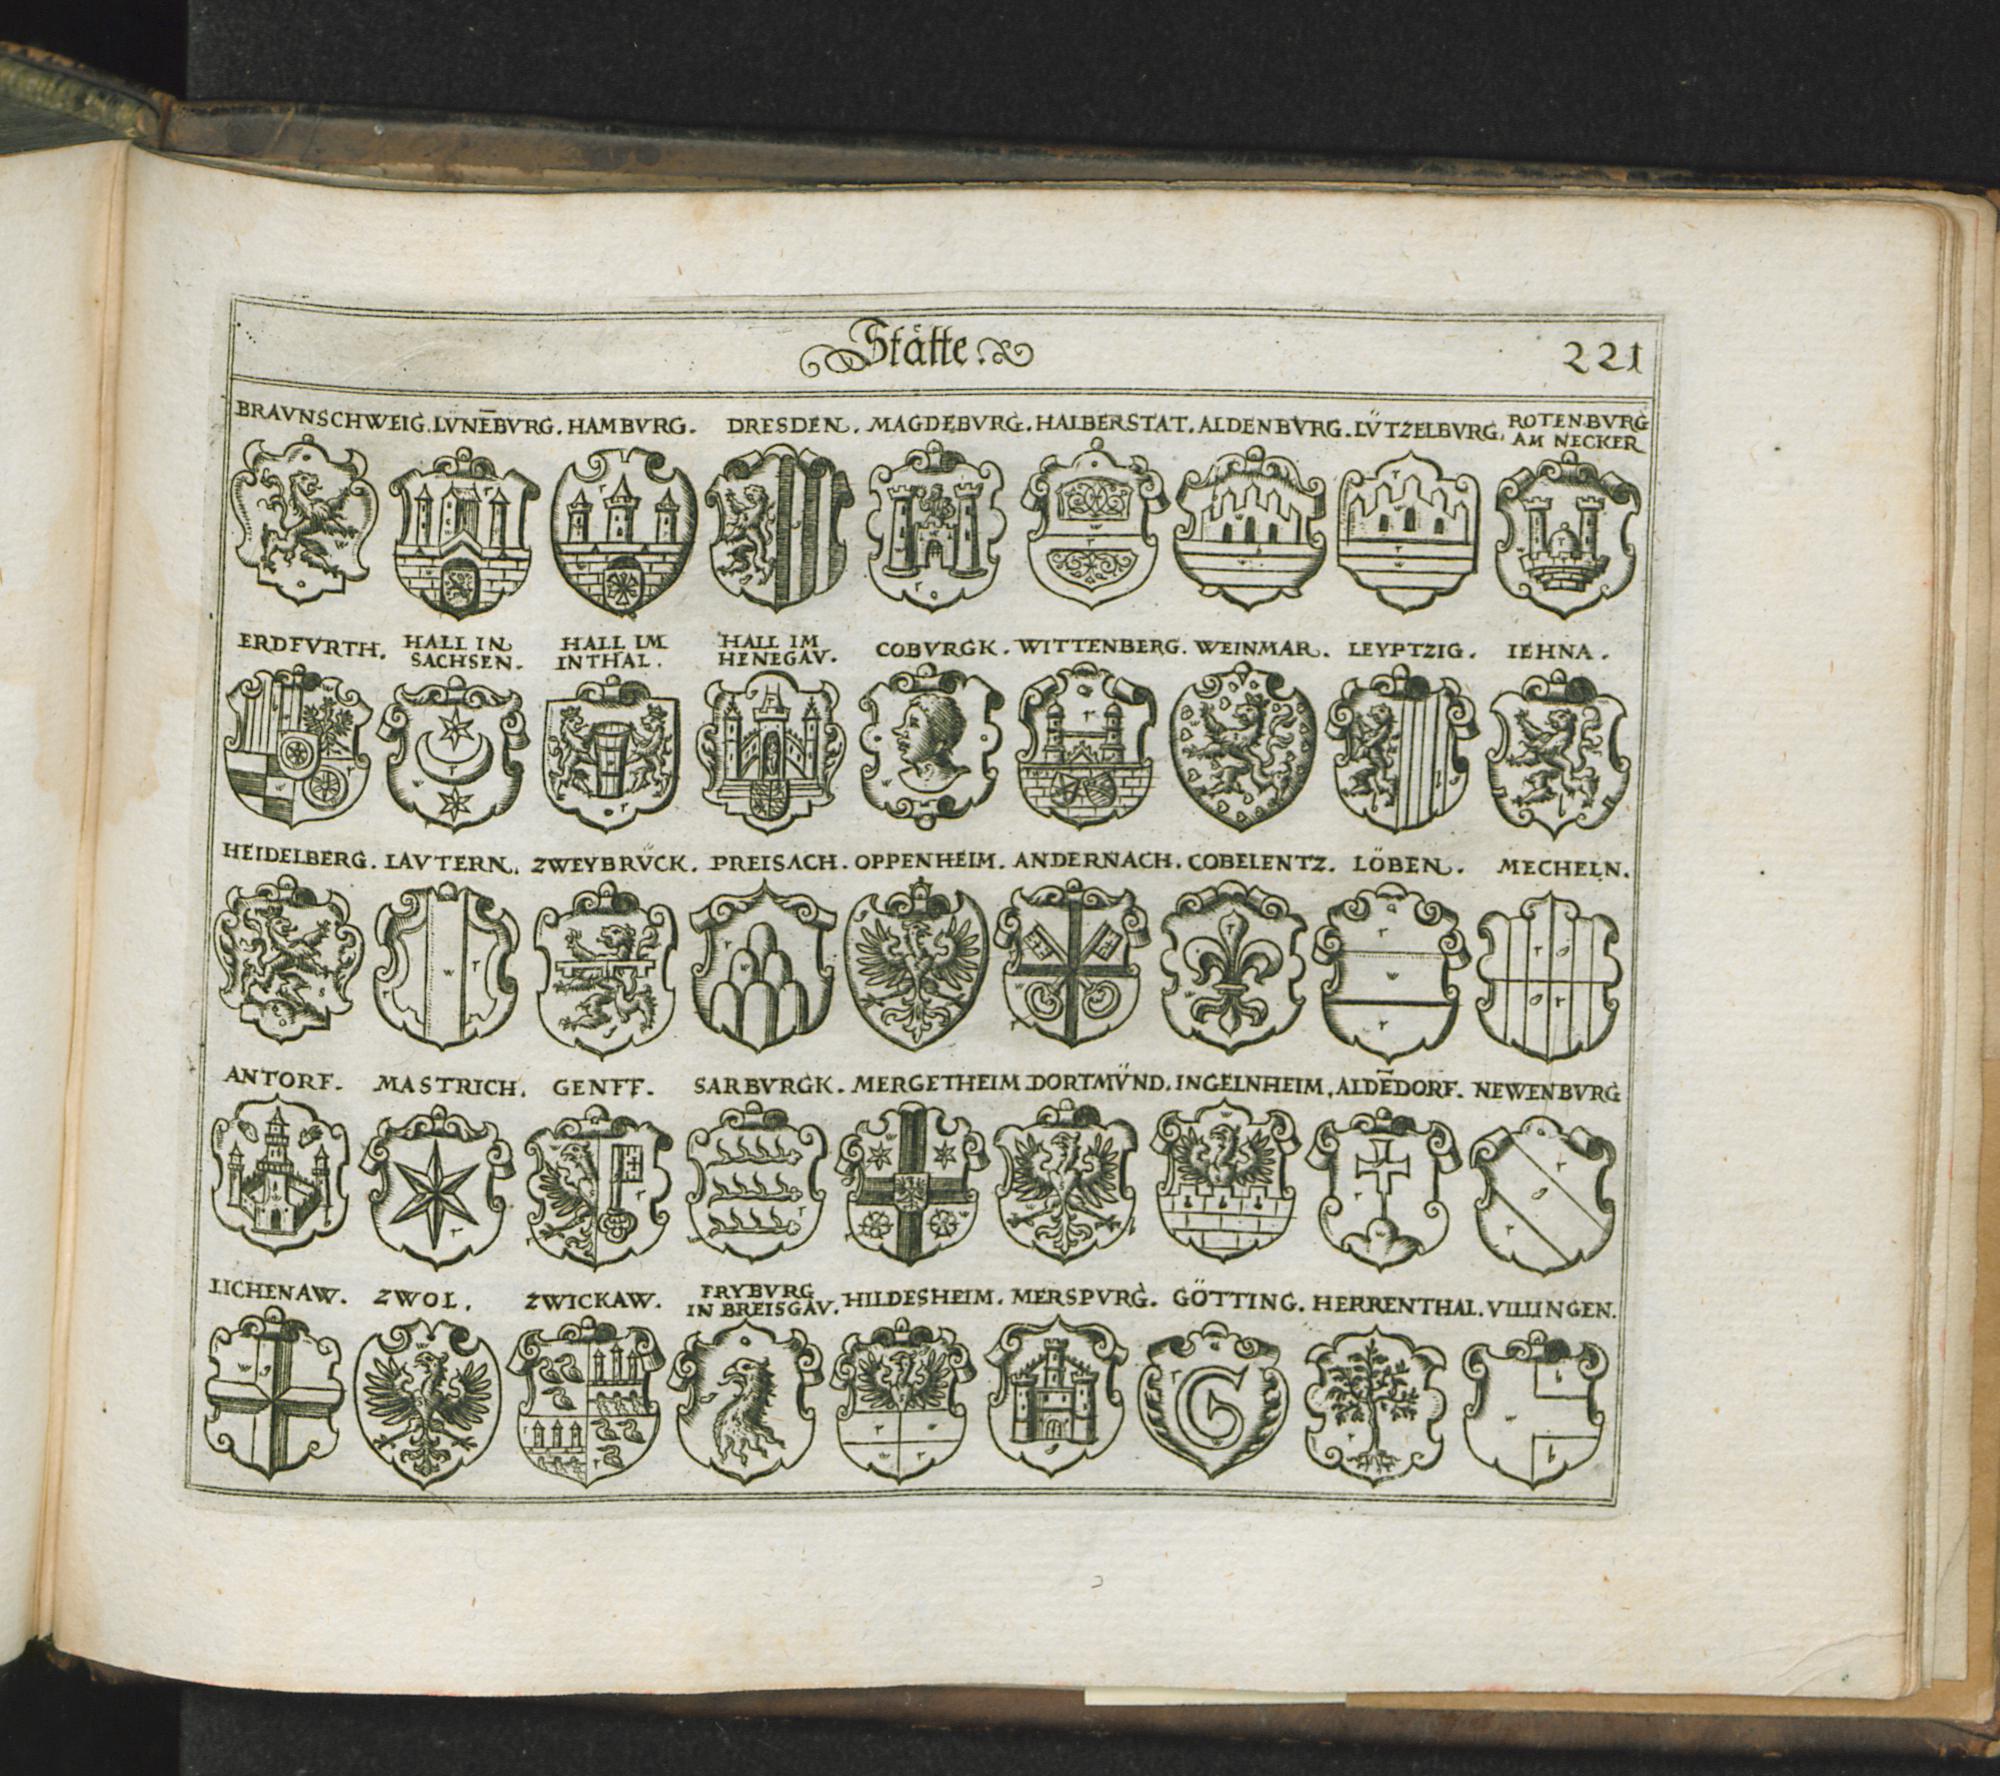 Stätte.
221
BRAVNSCHWEIG. LVNĒBVRG. HAMBVRG. DRESDEN. MAGDEBVRG. HALBERSTAT. ALDENBVRG. LŰTZELBVRG. ROTENBVRG
AM NECKER
ERDFVRTH. HALL IN HALL IM HALL IM COBVRGK. WITTENBERG. WEINMAR. LEYPTZIG. IEHNA.
SACHSEN. INTHAL. HENEGAV.
HEIDELBERG. LAVTERN. ZWEYBRŰCK. PREISACH. OPPENHEIM. ANDERNACH. COBELENTZ. LÖBEN. MECHELN.
ANTORF. MASTRICH. GENFF. SARBVRGK. MERGETHEIM. DORTMŰND. INGELNHEIM. ALDĒDORF. NEWENBVRG
LICHENAW. ZWOL. ZWICKAW. FRYBVRG HILDESHEIM. MERSPVRG. GÖTTING. HERRENTHAL. VILLINGEN.
IN BREISGAV.